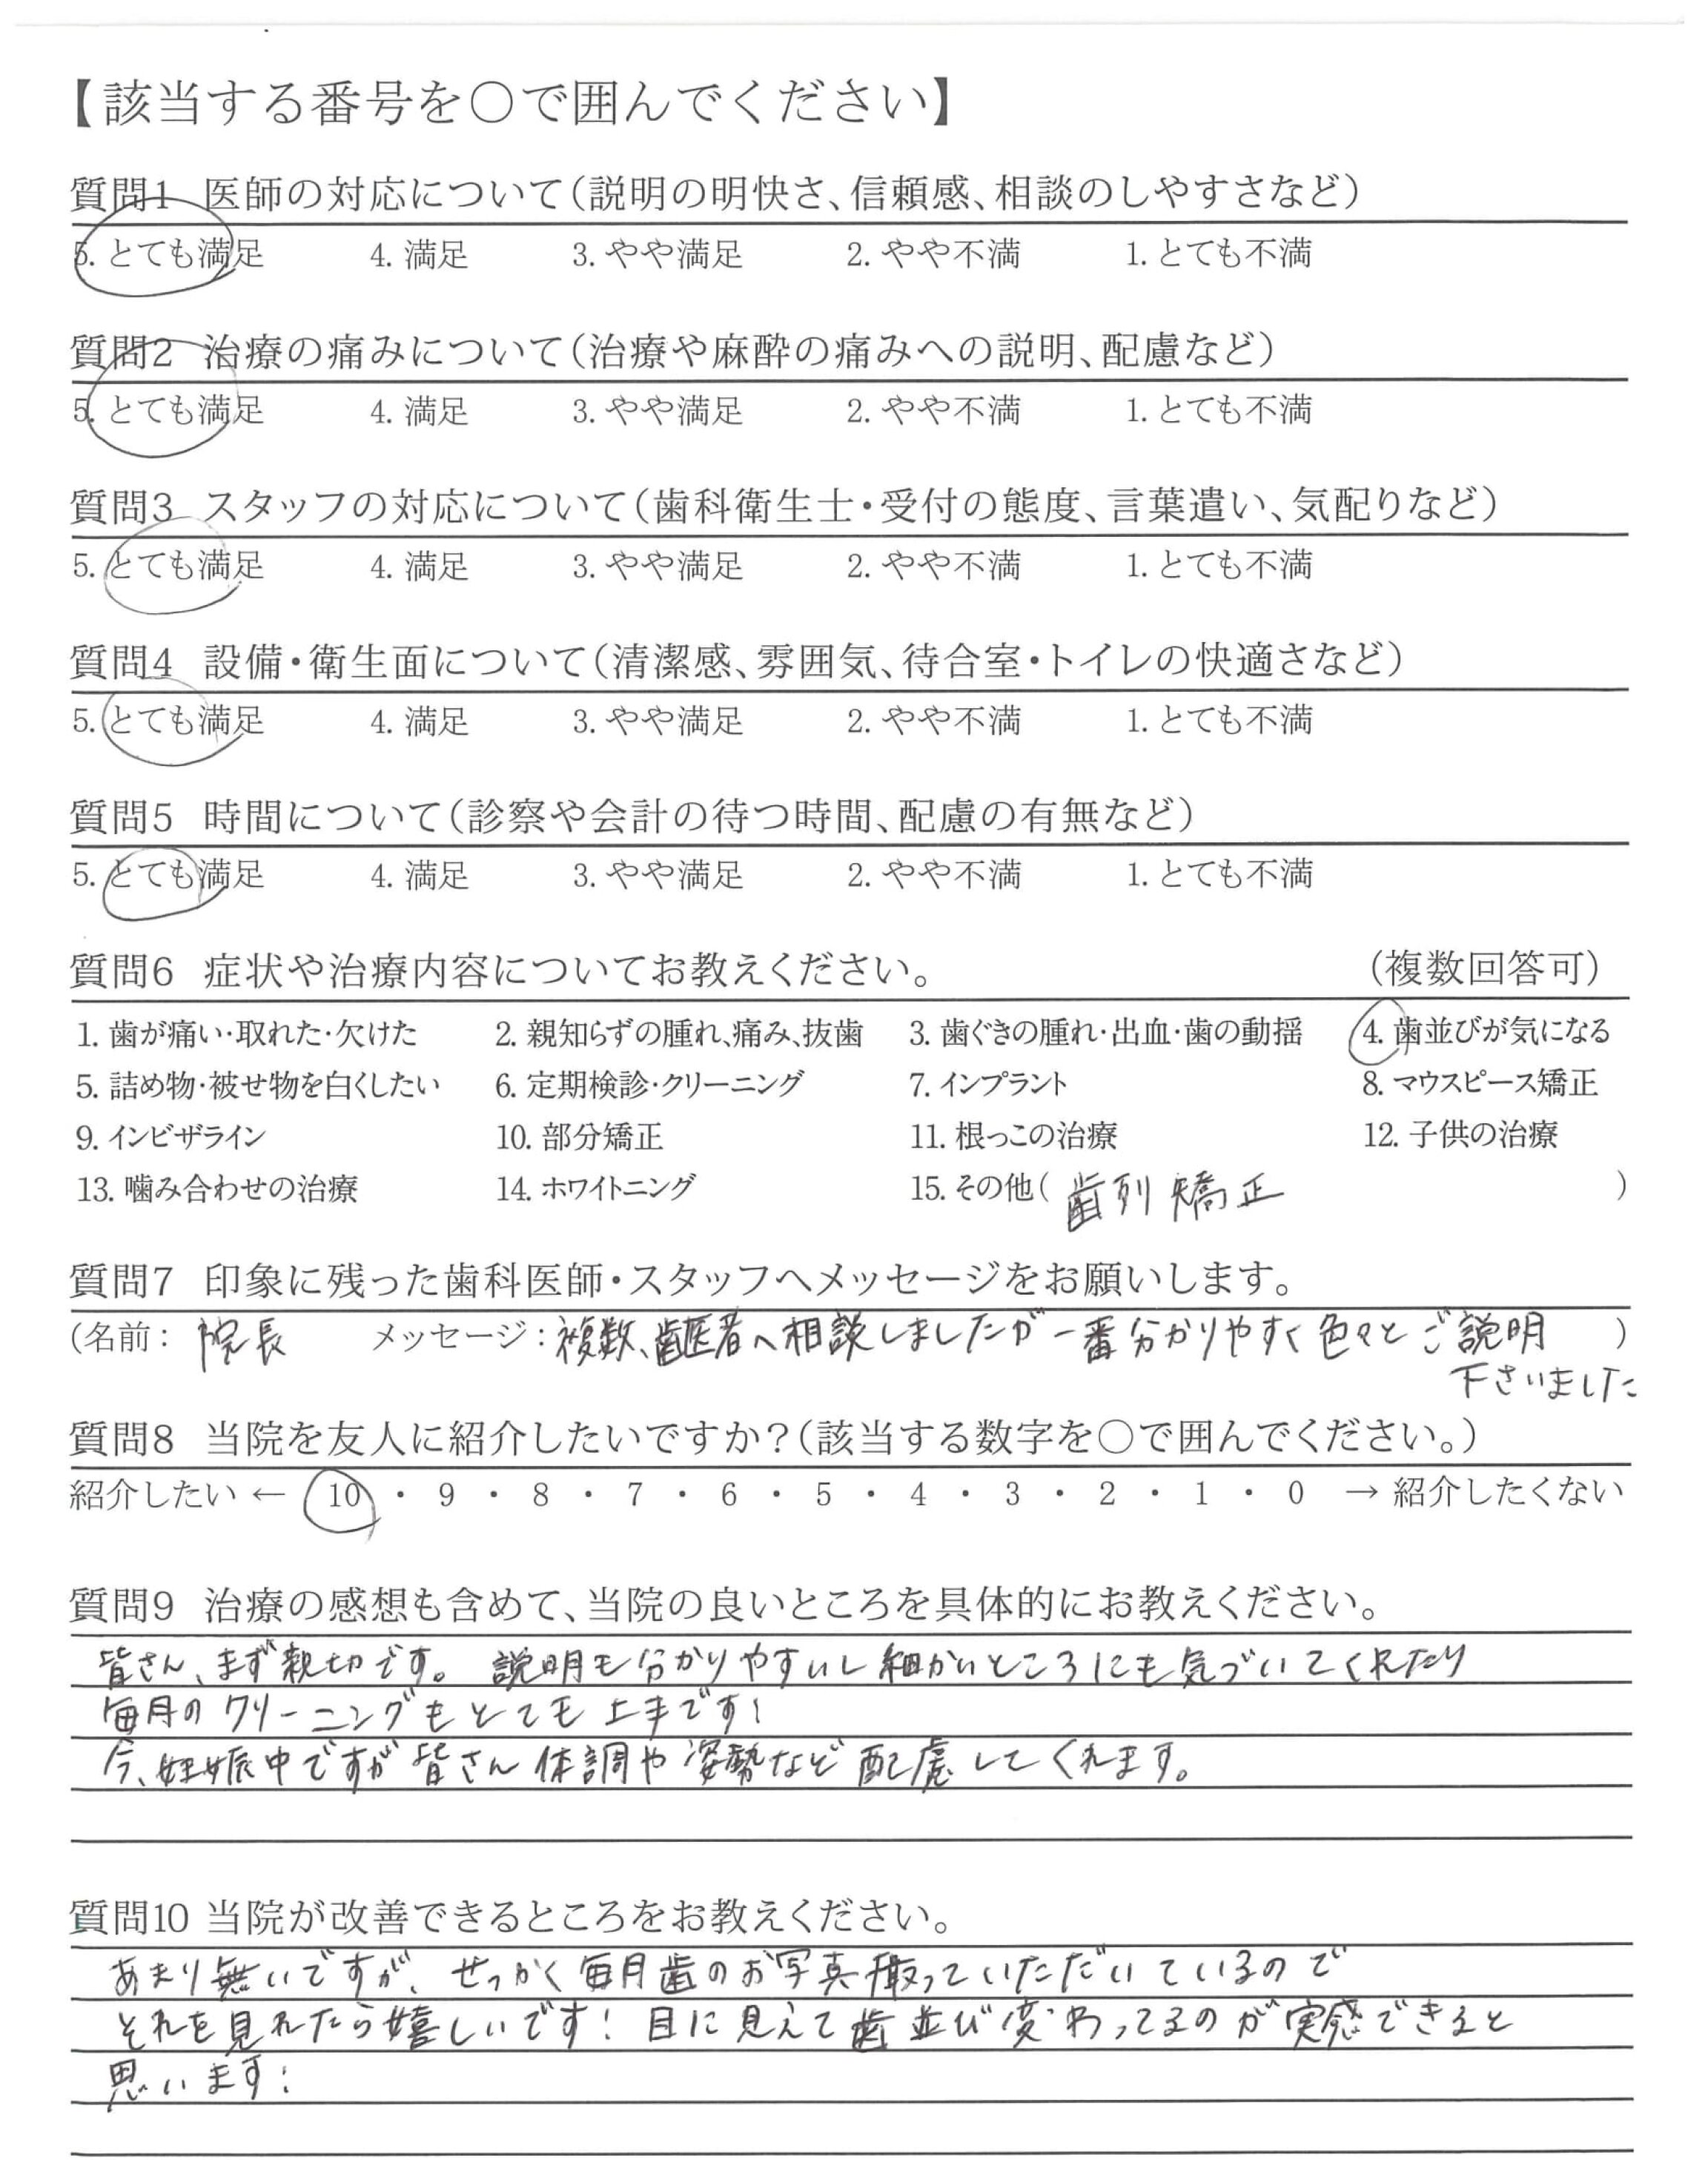 【該当する番号を〇で囲んでください】
質問1 医師の対応について(説明の明快さ、信頼感、相談のしやすさなど)
5. とても満足 4. 満足 3. やや満足 2. やや不満 1. とても不満
質問2 治療の痛みについて(治療や麻酔の痛みへの説明、配慮など)
5. とても満足 4. 満足 3. やや満足 2. やや不満 1. とても不満
質問3 スタッフの対応について(歯科衛生士・受付の態度、言葉遣い、気配りなど)
5. とても満足 4. 満足 3. やや満足 2. やや不満 1. とても不満
質問4 設備・衛生面について(清潔感、雰囲気、待合室・トイレの快適さなど)
5. とても満足 4. 満足 3. やや満足 2. やや不満 1. とても不満
質問5 時間について(診察や会計の待つ時間、配慮の有無など)
5. とても満足 4. 満足 3. やや満足 2. やや不満 1. とても不満
質問6 症状や治療内容についてお教えください。 (複数回答可)
1. 歯が痛い・取れた・欠けた 2. 親知らずの腫れ、痛み、抜歯 3. 歯ぐきの腫れ・出血・歯の動揺 4. 歯並びが気になる
5. 詰め物・被せ物を白くしたい 6. 定期検診・クリーニング 7. インプラント 8. マウスピース矯正
9. インビザライン 10. 部分矯正 11. 根っこの治療 12. 子供の治療
13. 噛み合わせの治療 14. ホワイトニング 15. その他( 歯列矯正 )
質問7 印象に残った歯科医師・スタッフへメッセージをお願いします。
(名前: 院長 メッセージ: 複数、歯医者へ相談しましたが一番分かりやすく色々とご説明 )
下さいました
質問8 当院を友人に紹介したいですか?(該当する数字を〇で囲んでください。)
紹介したい ← 10 ・ 9 ・ 8 ・ 7 ・ 6 ・ 5 ・ 4 ・ 3 ・ 2 ・ 1 ・ 0 → 紹介したくない
質問9 治療の感想も含めて、当院の良いところを具体的にお教えください。
皆さん、まず親切です。説明も分かりやすいし細かいところにも気づいてくれたり
毎月のクリーニングもとても上手です!
今、妊娠中ですが皆さん体調や姿勢など配慮してくれます。
質問10 当院が改善できるところをお教えください。
あまり無いですが、せっかく毎月歯のお写真撮っていただいているので
それを見れたら嬉しいです!目に見えて歯並び変わってるのが実感できると
思います!